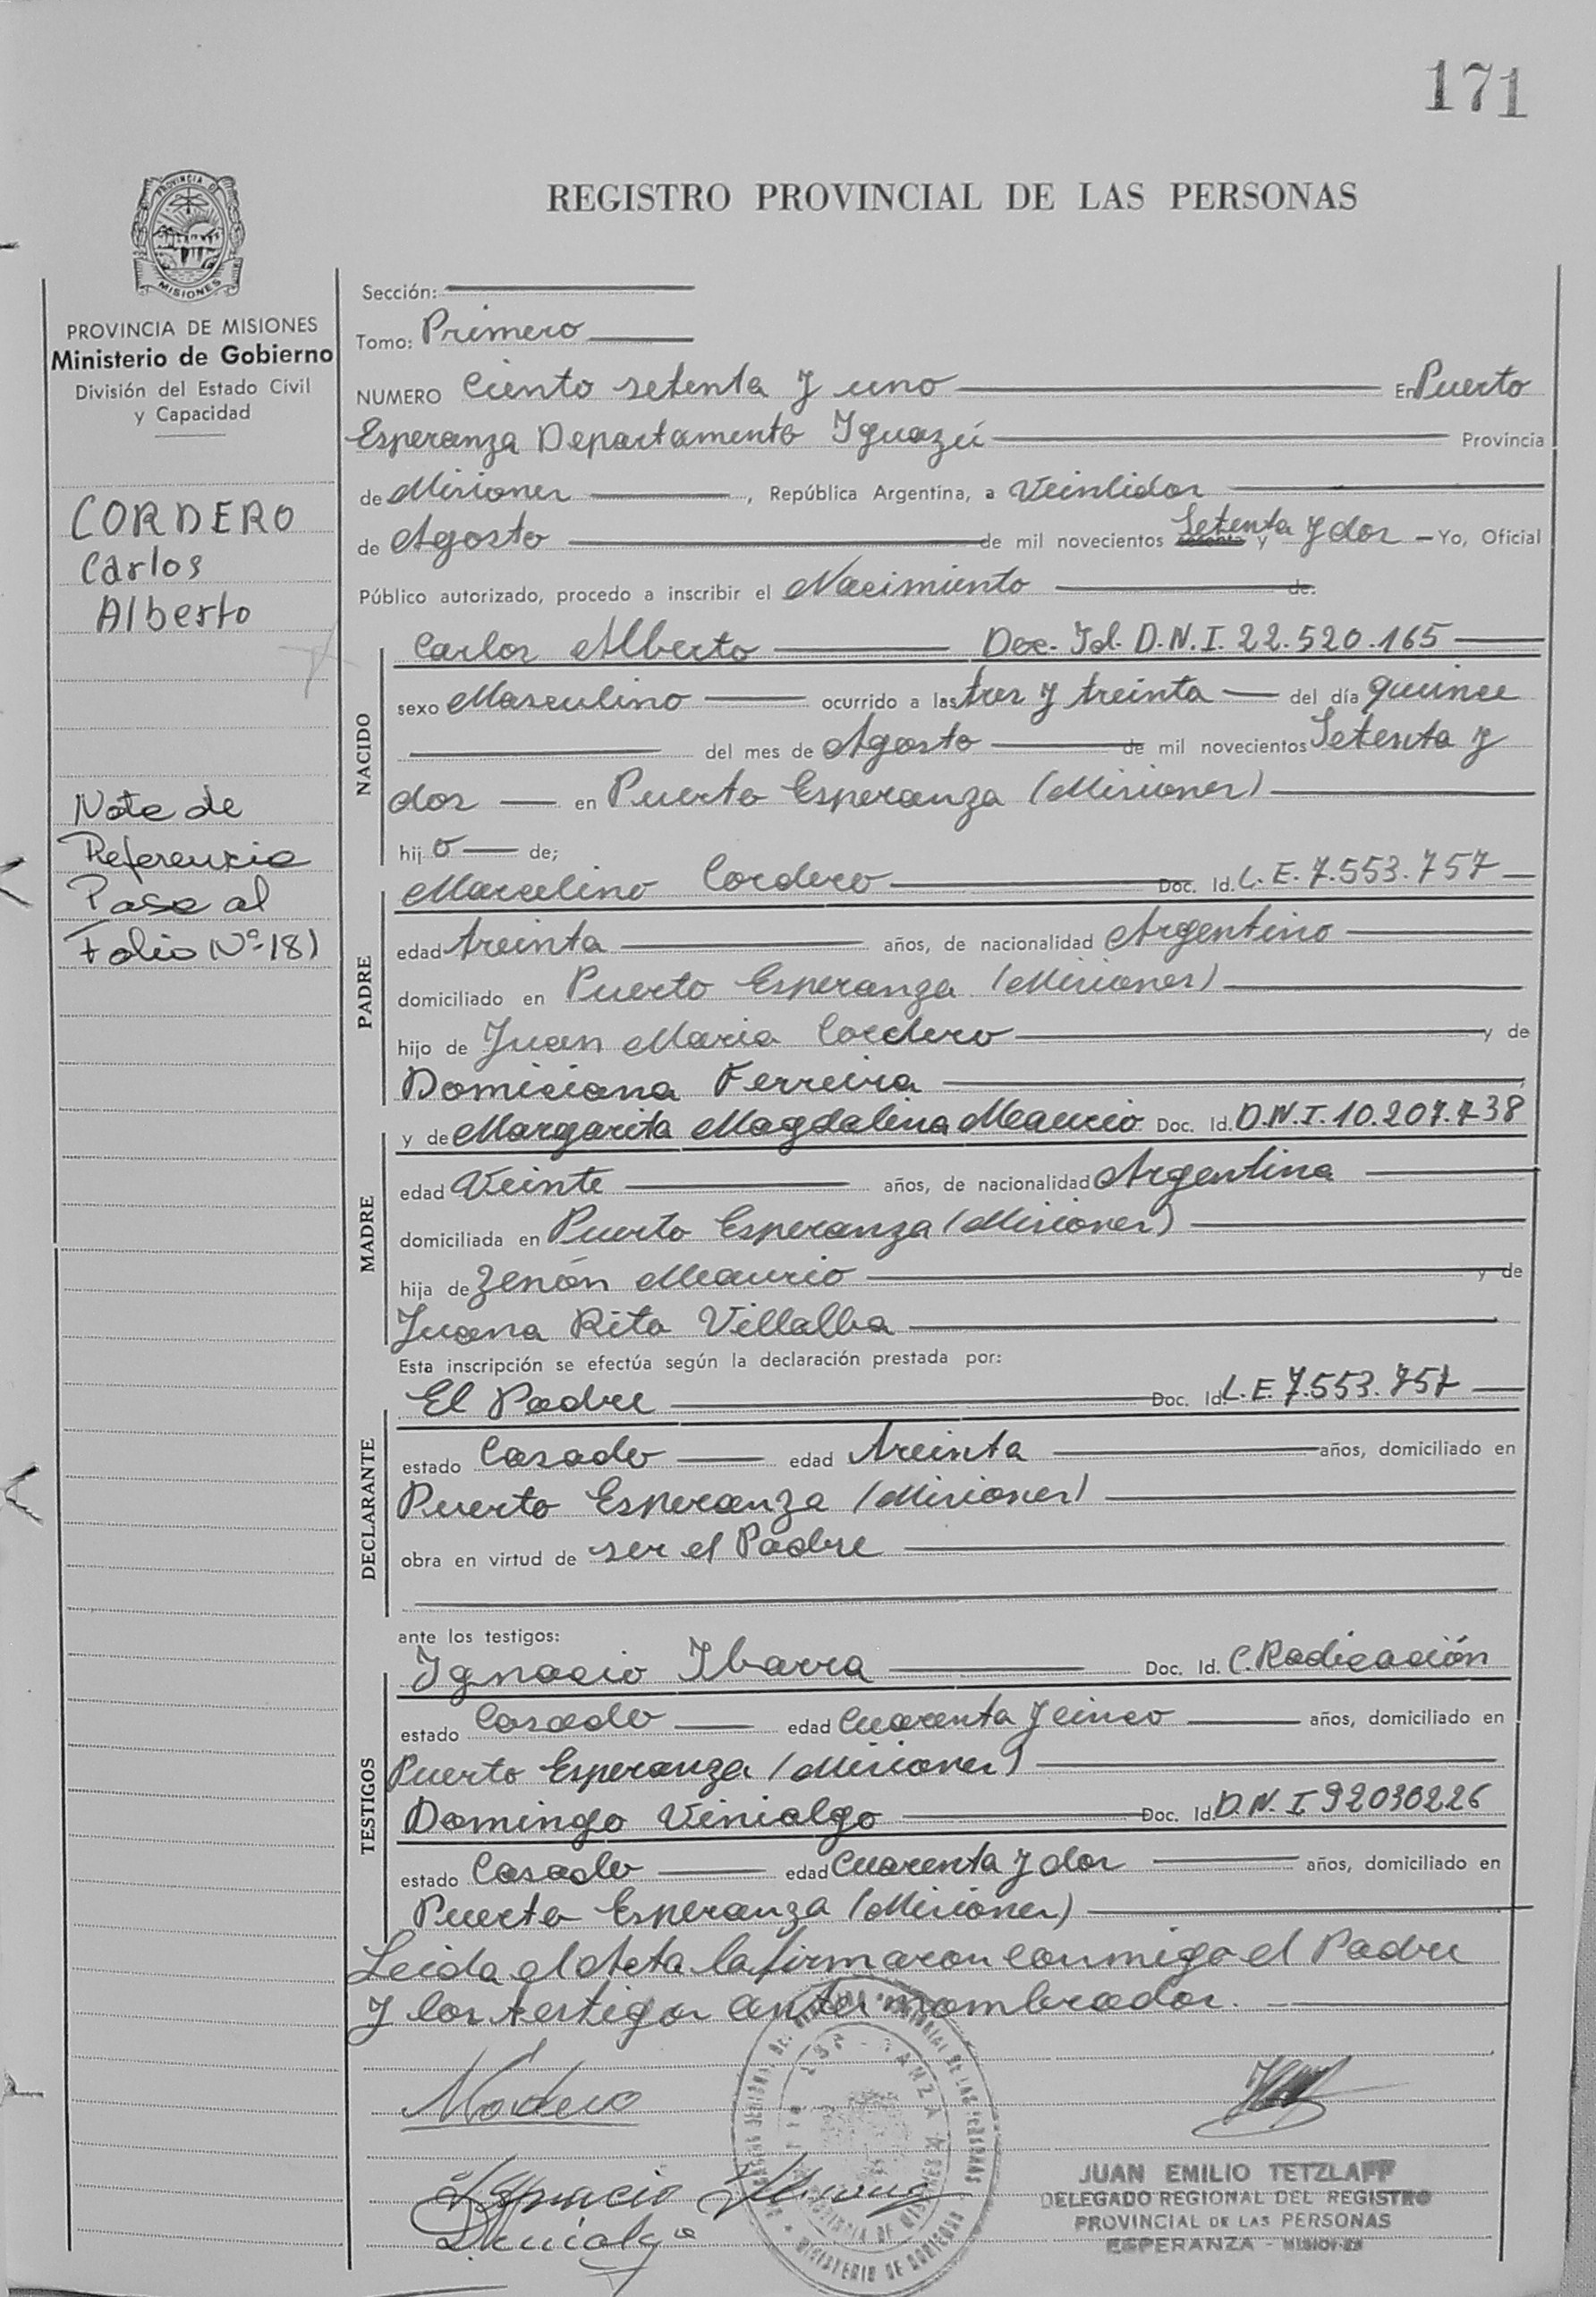 171
REGISTRO PROVINCIAL DE LAS PERSONAS
PROVINCIA DE
MISIONES
PROVINCIA DE MISIONES
Ministerio de Gobierno
División del Estado Civil
y Capacidad
CORDERO
Carlos
Alberto
Nota de
Referencia
Pase al
Folio Nº 181
Sección:
Tomo: Primero
NUMERO Ciento setenta y uno En Puerto
Esperanza Departamento Iguazú Provincia
de Misiones, República Argentina, a Veintidos
de Agosto de mil novecientos Setenta y dos - Yo, Oficial
Público autorizado, procedo a inscribir el Nacimiento de:
NACIDO
Carlos Alberto Doc. Id. D.N.I. 22.520.165
sexo Masculino ocurrido a las tres y treinta del día quince
del mes de Agosto de mil novecientos Setenta y
dos en Puerto Esperanza (Misiones)
hijo de;
PADRE
Marcelino Cordero Doc. Id. L.E. 7.553.757
edad treinta años, de nacionalidad Argentino
domiciliado en Puerto Esperanza (Misiones)
hijo de Juan Maria Cordero y de
Domiciana Ferreira
MADRE
y de Margarita Magdalena Meaurio Doc. Id. D.N.I. 10.207.738
edad Veinte años, de nacionalidad Argentina
domiciliada en Puerto Esperanza (Misiones)
hija de Zenón Meaurio y de
Juana Rita Villalba
Esta inscripción se efectúa según la declaración prestada por:
DECLARANTE
El Padre Doc. Id. L.E. 7.553.757
estado Casado edad treinta años, domiciliado en
Puerto Esperanza (Misiones)
obra en virtud de ser el Padre
ante los testigos:
TESTIGOS
Ignacio Ibarra Doc. Id. C. Radicación
estado Casado edad Cuarenta y cinco años, domiciliado en
Puerto Esperanza (Misiones)
Domingo Vinialgo Doc. Id. D.N.I 92030226
estado Casado edad Cuarenta y dos años, domiciliado en
Puerto Esperanza (Misiones)
Leida el Acta la firmaron conmigo el Padre
y los testigos antes nombrados.
Ignacio
JUAN EMILIO TETZLAFF
DELEGADO REGIONAL DEL REGISTRO
PROVINCIAL DE LAS PERSONAS
ESPERANZA - MISIONES